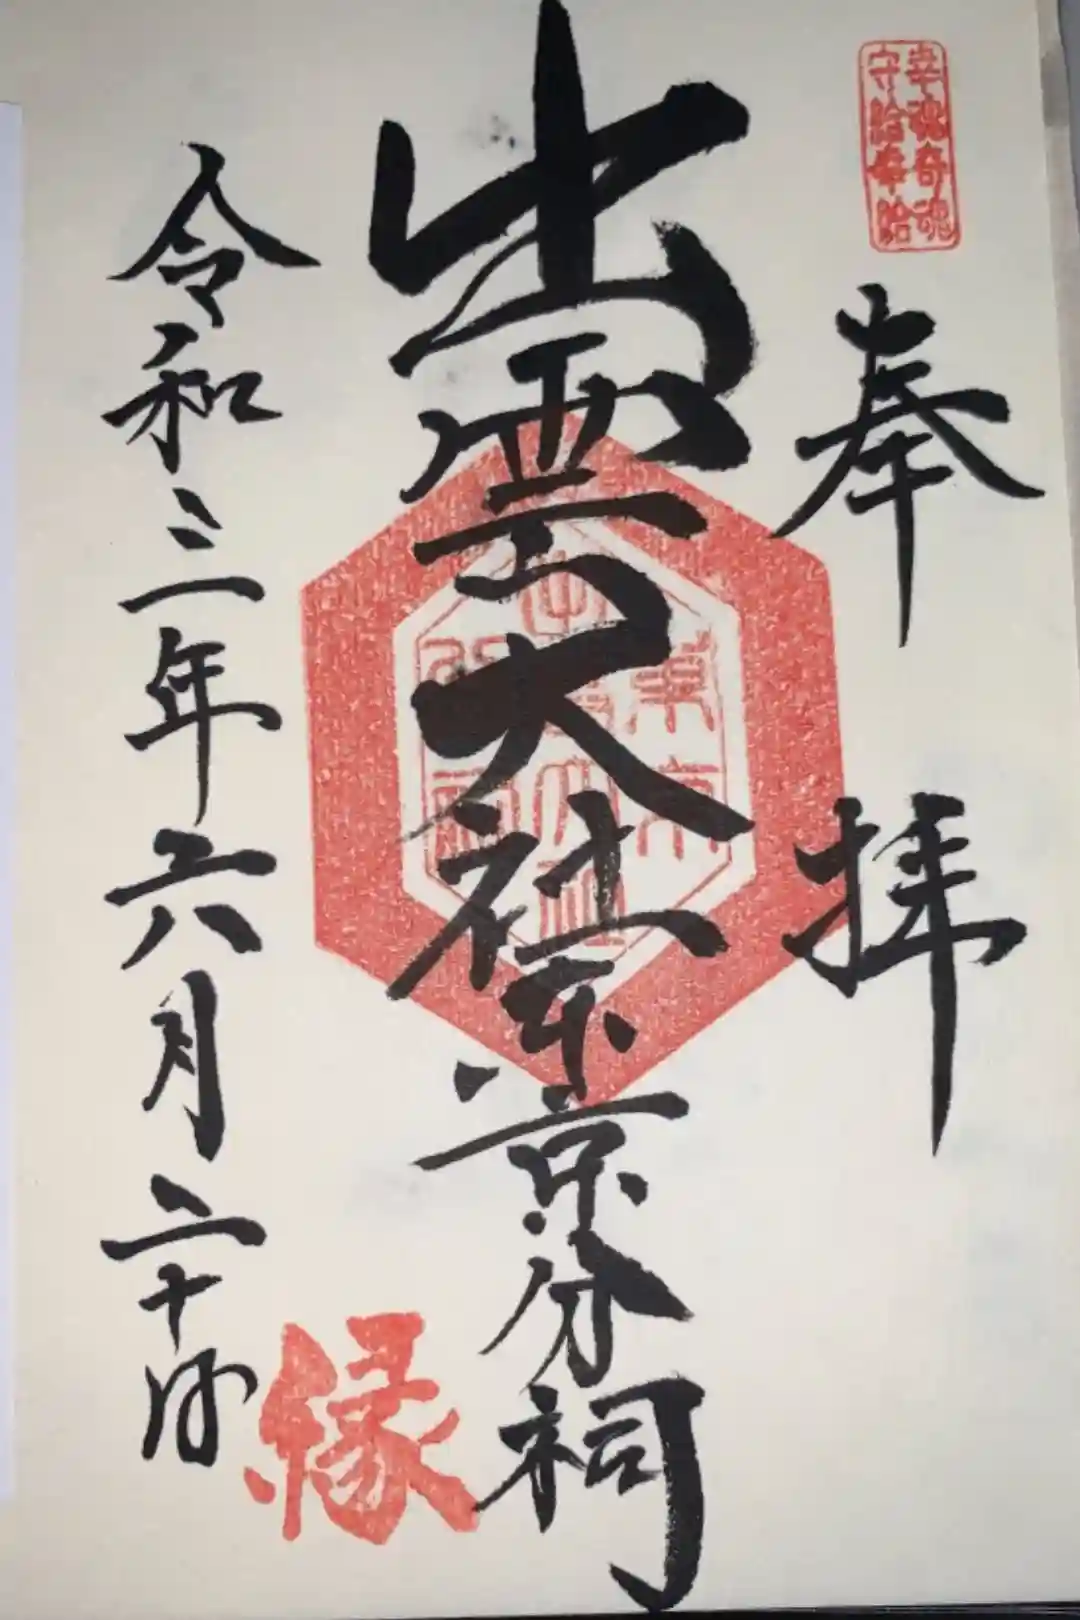 幸魂奇魂
守給幸給
奉拝
出雲大社東京分祠
東京
縁
令和三年六月二十日